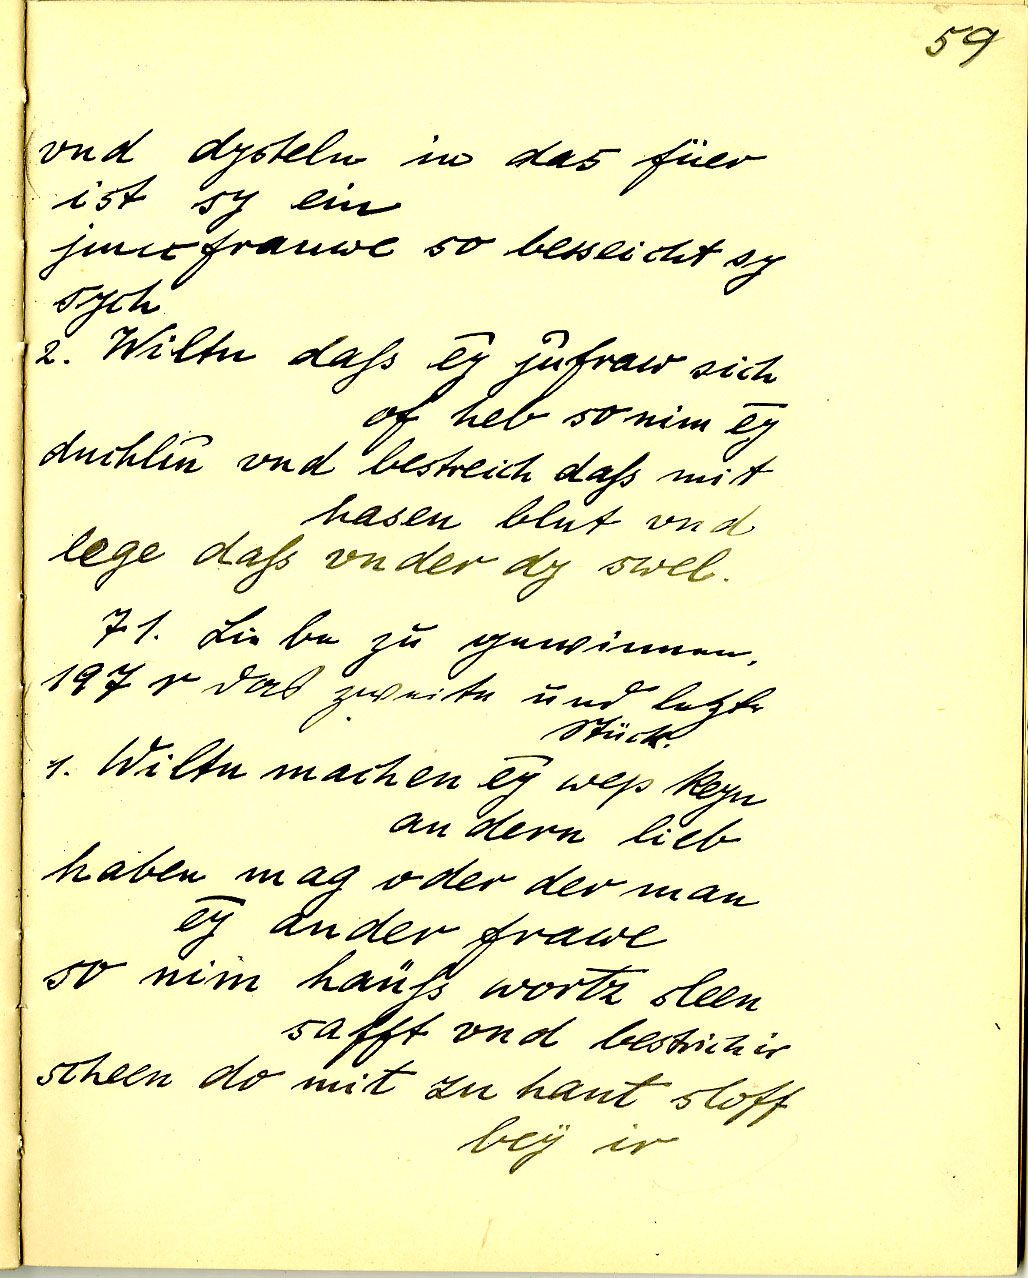 59
vnd dysteln in das füer
ist sy ein
juncfrauwe so besseicht sy
sych
2. Wiltu daſs ey̅ ju̅fraw sich
of heb so nim ey̅
duchlin̅ vnd bestreich daſs mit
hasen blut vnd
lege daſs vnder dy swel.
71. Liebe zu gewinnen,
197 r das zweite und letzte
Stück.
1. Wiltu machen ey̅ wep keyn
andern lieb
haben mag oder der man
ey̅ ander frawe
so nim haüſs wortz sleen
safft vnd bestrich ir
scheen do mit zu hant sloff
beÿ ir